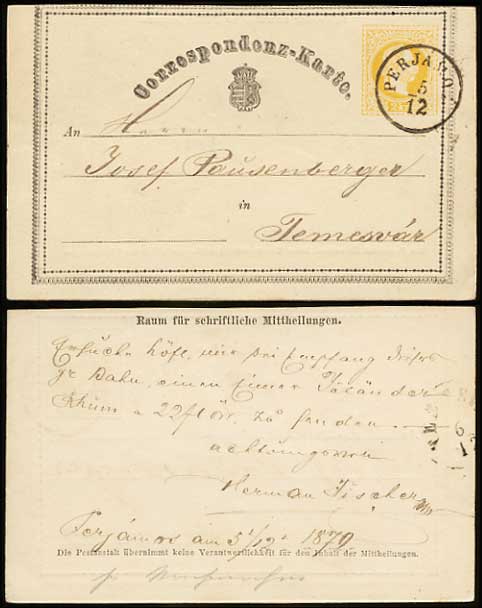 Correspondenz-Karte.
PERJÁMOS
5
12
An Herrn
Josef Pausenberger
in
Temesvár
Raum für schriftliche Mittheilungen.
Ersuche höfl. mir bei Empfang dieses
pr Bahn, einen Eimer Isländer
Rhum a 22 fl öW. zu senden
achtungsvoll
Herman Fischer
Perjámos am 5/12 1870
Die Postanstalt übernimmt keine Verantwortlichkeit für den Inhalt der Mittheilungen.